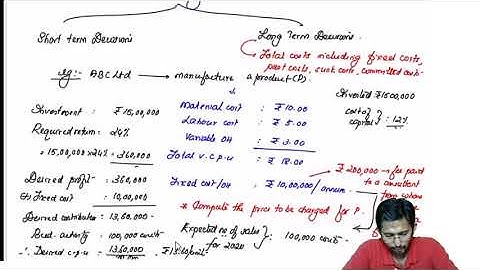 Short term Decisions
Long Term Decisions
Total costs including fixed costs,
past costs, sunk costs, committed costs
eg:- ABC Ltd → manufacture a product (P).
Investment : ₹ 15,00,000
Required return : 24%
= 15,00,000 x 24% = 360,000
Desired profit :- 360,000
Fixed cost : 10,00,000
Desired contribution : 13,60,000
100,000 units
∴ Desired c.p.u = 1360,000
Material cost : ₹ 10.00
Labour cost : ₹ 5.00
Variable OH : ₹ 3.00
Total v.c.p.u : ₹ 18.00
Fixed cost/OH : ₹ 10,00,000/annum
* Compute the price to be charged for P.
Expected no of sales for 2020 } : 100,000 units
Invested ₹ 1500,000
cost of capital } : 12%
₹ 200,000 → paid
to a consultant